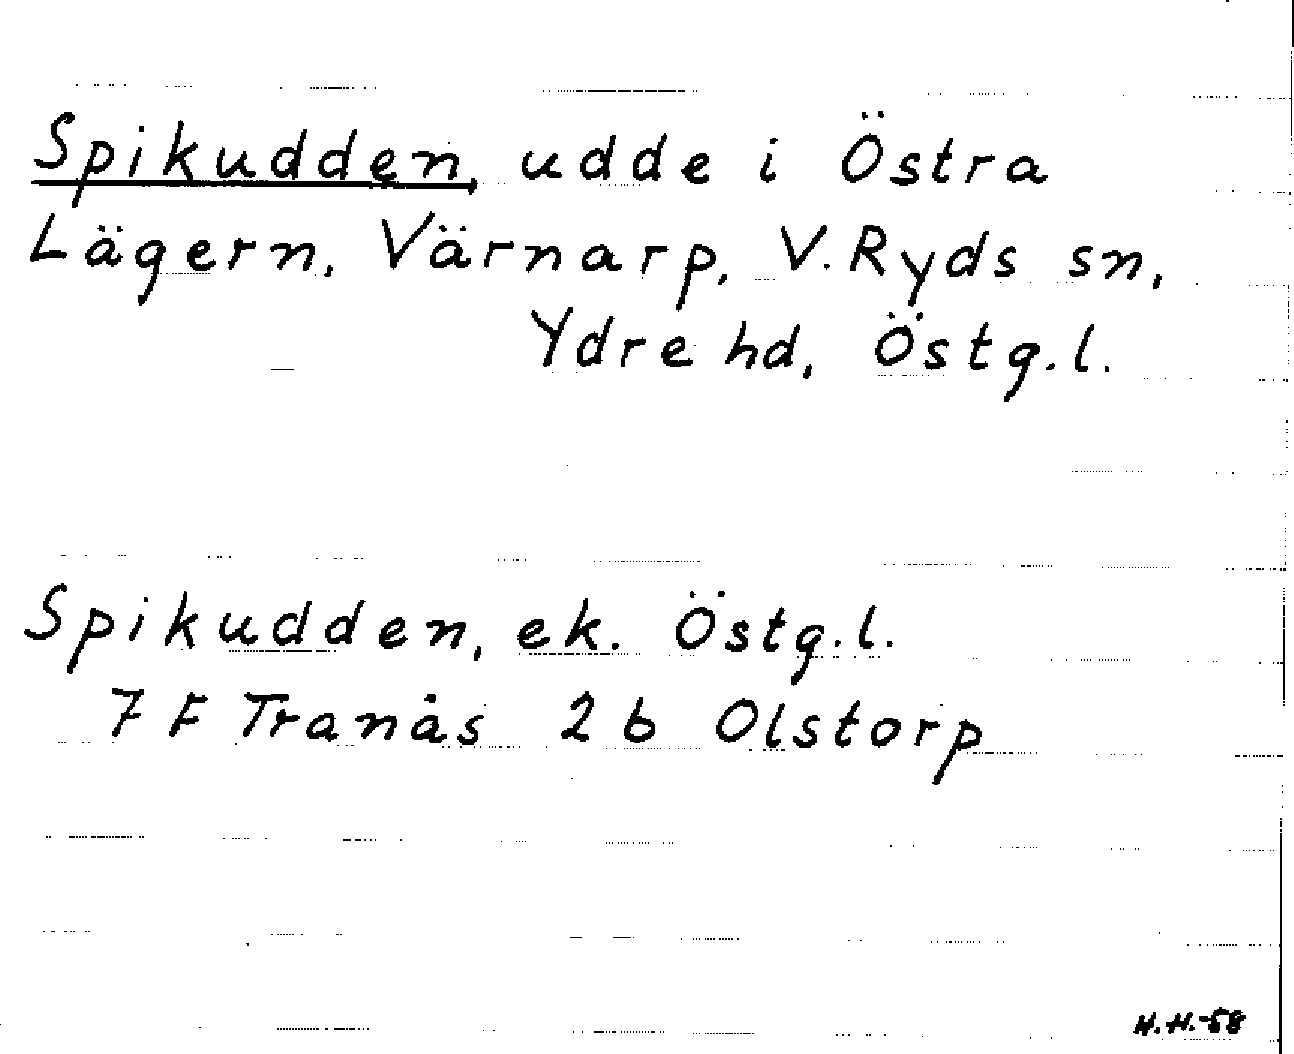 Spikudden, udde i Östra
Lägern, Värnarp, V. Ryds sn,
Ydre hd, Östg.l.
Spikudden, ek. Östg.l.
7 F Tranås 2 b Olstorp
H.H.-58